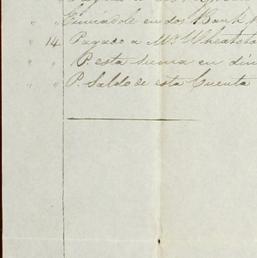 " " Enviadole en dos Bank
" 14 Pagado a Mr. Wheatsto
" " P. esta suma en din
" " P. Saldo de esta Cuenta